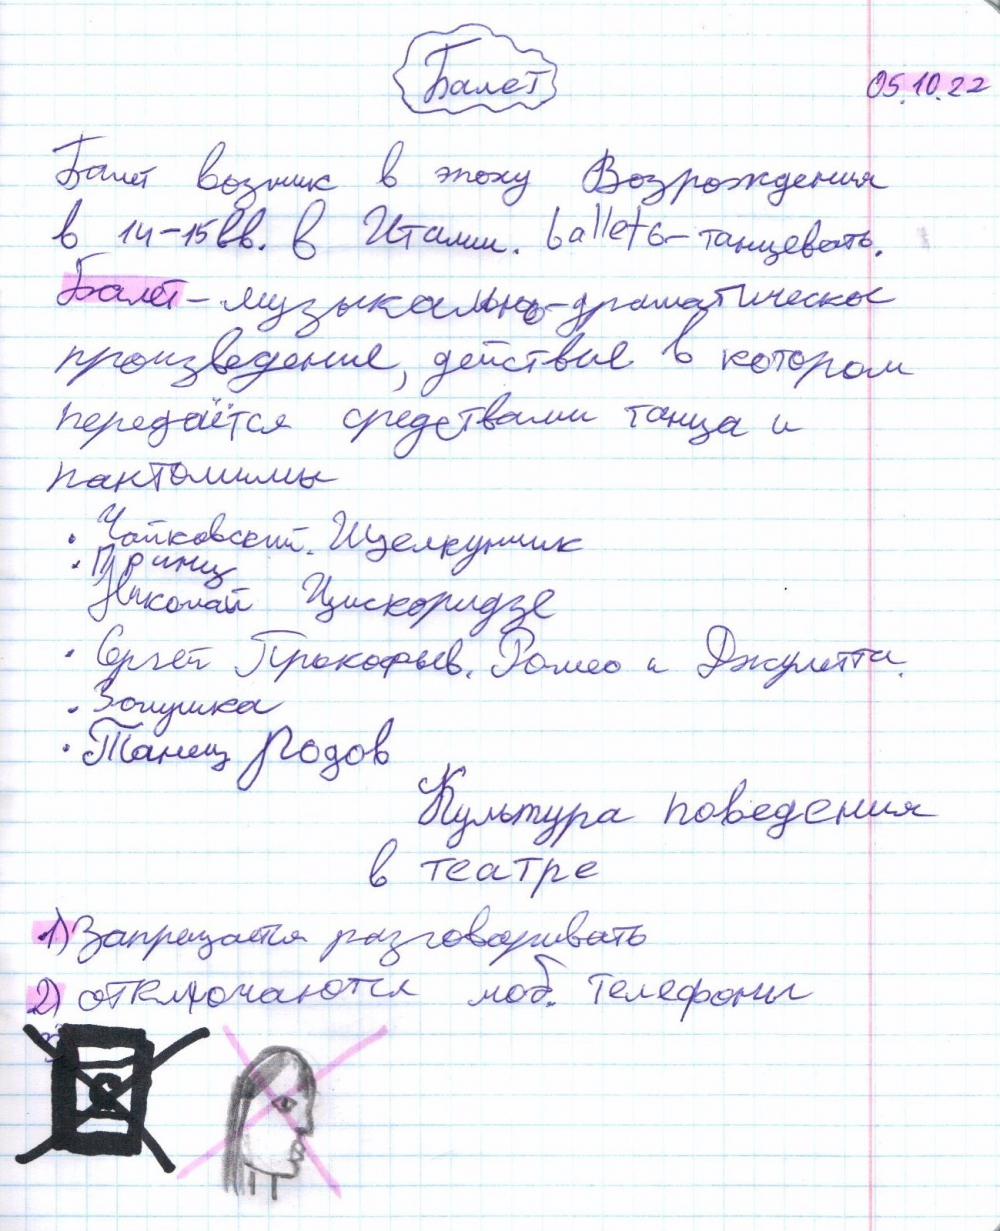 Балет
05.10.22
Балет возник в эпоху Возрождения
в 14-15вв. в Италии. balleto-танцевать.
Балет-музыкально-драматическое
произведение, действие в котором
передаётся средствами танца и
пантомимы
• Чайковский. Щелкунчик
• Принц
Николай Цискаридзе
• Сергей Прокофьев. Ромео и Джульетта.
• Золушка
• Танец Родов
Культура поведения
в театре
1) Запрещается разговаривать
2) отключаются моб. телефоны
3)